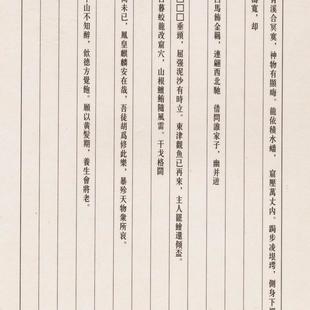 有溪合冥寞，神物有顯晦。龍依積水蟠，窟壓萬丈內。跼步淩垠堮，側身下
濤寬，卻
白馬飾金羈，連翩西北馳 借問誰家子，幽并遊
□□□垂頭，屈强泥沙有時立。東津觀魚已再來，主人罷鱠還傾盃。
日暮蛟龍改窟穴，山根鱣鮪隨風雷。干戈格鬬
尚未已，鳳皇麒麟安在哉，吾徒胡爲縱此樂，暴殄天物衆所哀。
山不知醉，飲德方覺飽。願以黃髮期，養生會將老。